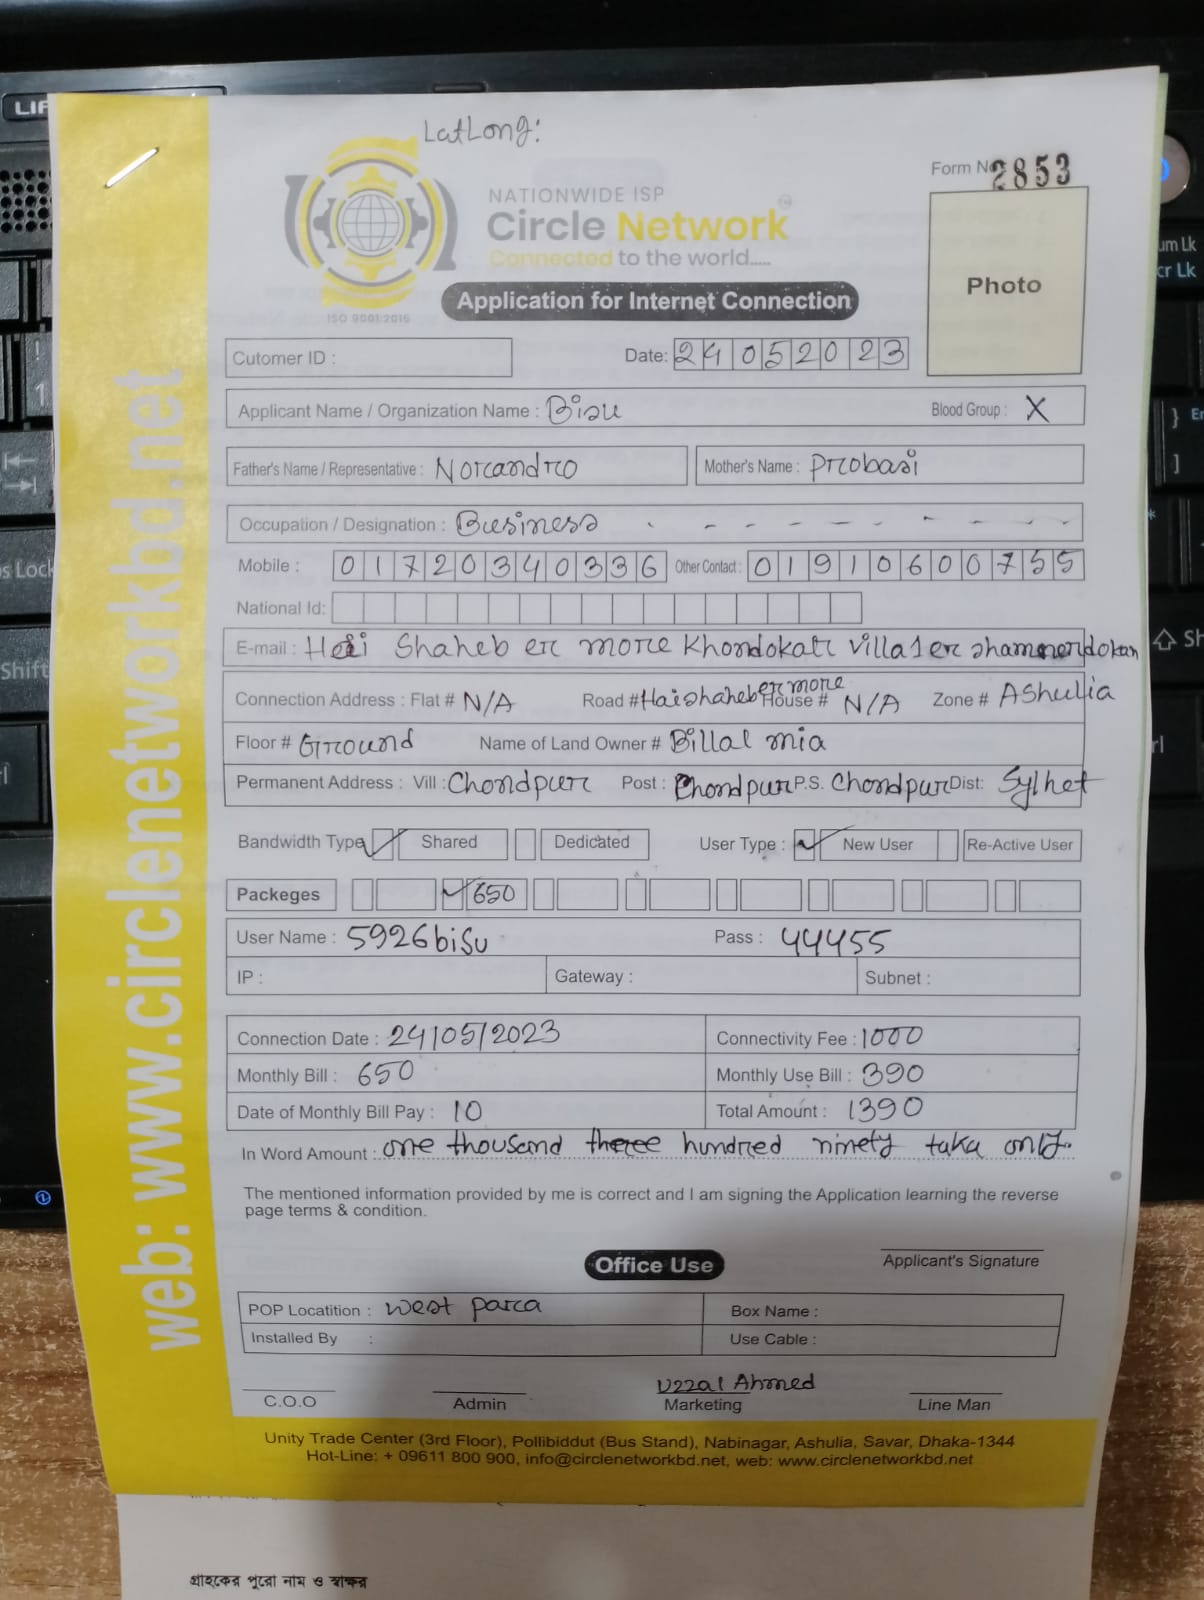 LatLong:
Form No 2853
NATIONWIDE ISP
Circle Network
Connected to the world.....
ISO 9001:2015
Application for Internet Connection
Photo
Cutomer ID :
Date: 24052023
Applicant Name / Organization Name : Bisu Blood Group : X
Father's Name / Representative : Norcandro Mother's Name : Probasi
Occupation / Designation : Business
Mobile : 01720340336 Other Contact : 01910600755
National Id:
E-mail : Haji Shaheb er more Khondokar villa 1 er shamner dokan
Connection Address : Flat # N/A Road # Haishaheb er more House # N/A Zone # Ashulia
Floor # Ground Name of Land Owner # Billal mia
Permanent Address : Vill : Chondpur Post : Chondpur P.S. Chondpur Dist: Sylhet
Bandwidth Type Shared Dedicated User Type : New User Re-Active User
Packeges 650
User Name : 5926bisu Pass : 44455
IP : Gateway : Subnet :
Connection Date : 24/05/2023 Connectivity Fee : 1000
Monthly Bill : 650 Monthly Use Bill : 390
Date of Monthly Bill Pay : 10 Total Amount : 1390
In Word Amount : one thousand three hundred ninety taka only.
The mentioned information provided by me is correct and I am signing the Application learning the reverse
page terms & condition.
Applicant's Signature
Office Use
POP Locatition : west parca Box Name :
Installed By : Use Cable :
Uzzal Ahmed
C.O.O Admin Marketing Line Man
Unity Trade Center (3rd Floor), Pollibiddut (Bus Stand), Nabinagar, Ashulia, Savar, Dhaka-1344
Hot-Line: + 09611 800 900, info@circlenetworkbd.net, web: www.circlenetworkbd.net
web: www.circlenetworkbd.net
গ্রাহকের পুরো নাম ও স্বাক্ষর